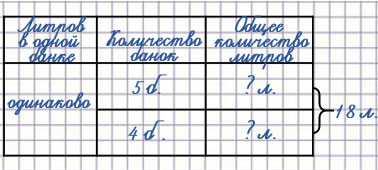 Литров
в одной
банке
Количество
банок
Общее
количество
литров
одинаково
5 б.
? л.
4 б.
? л.
18 л.